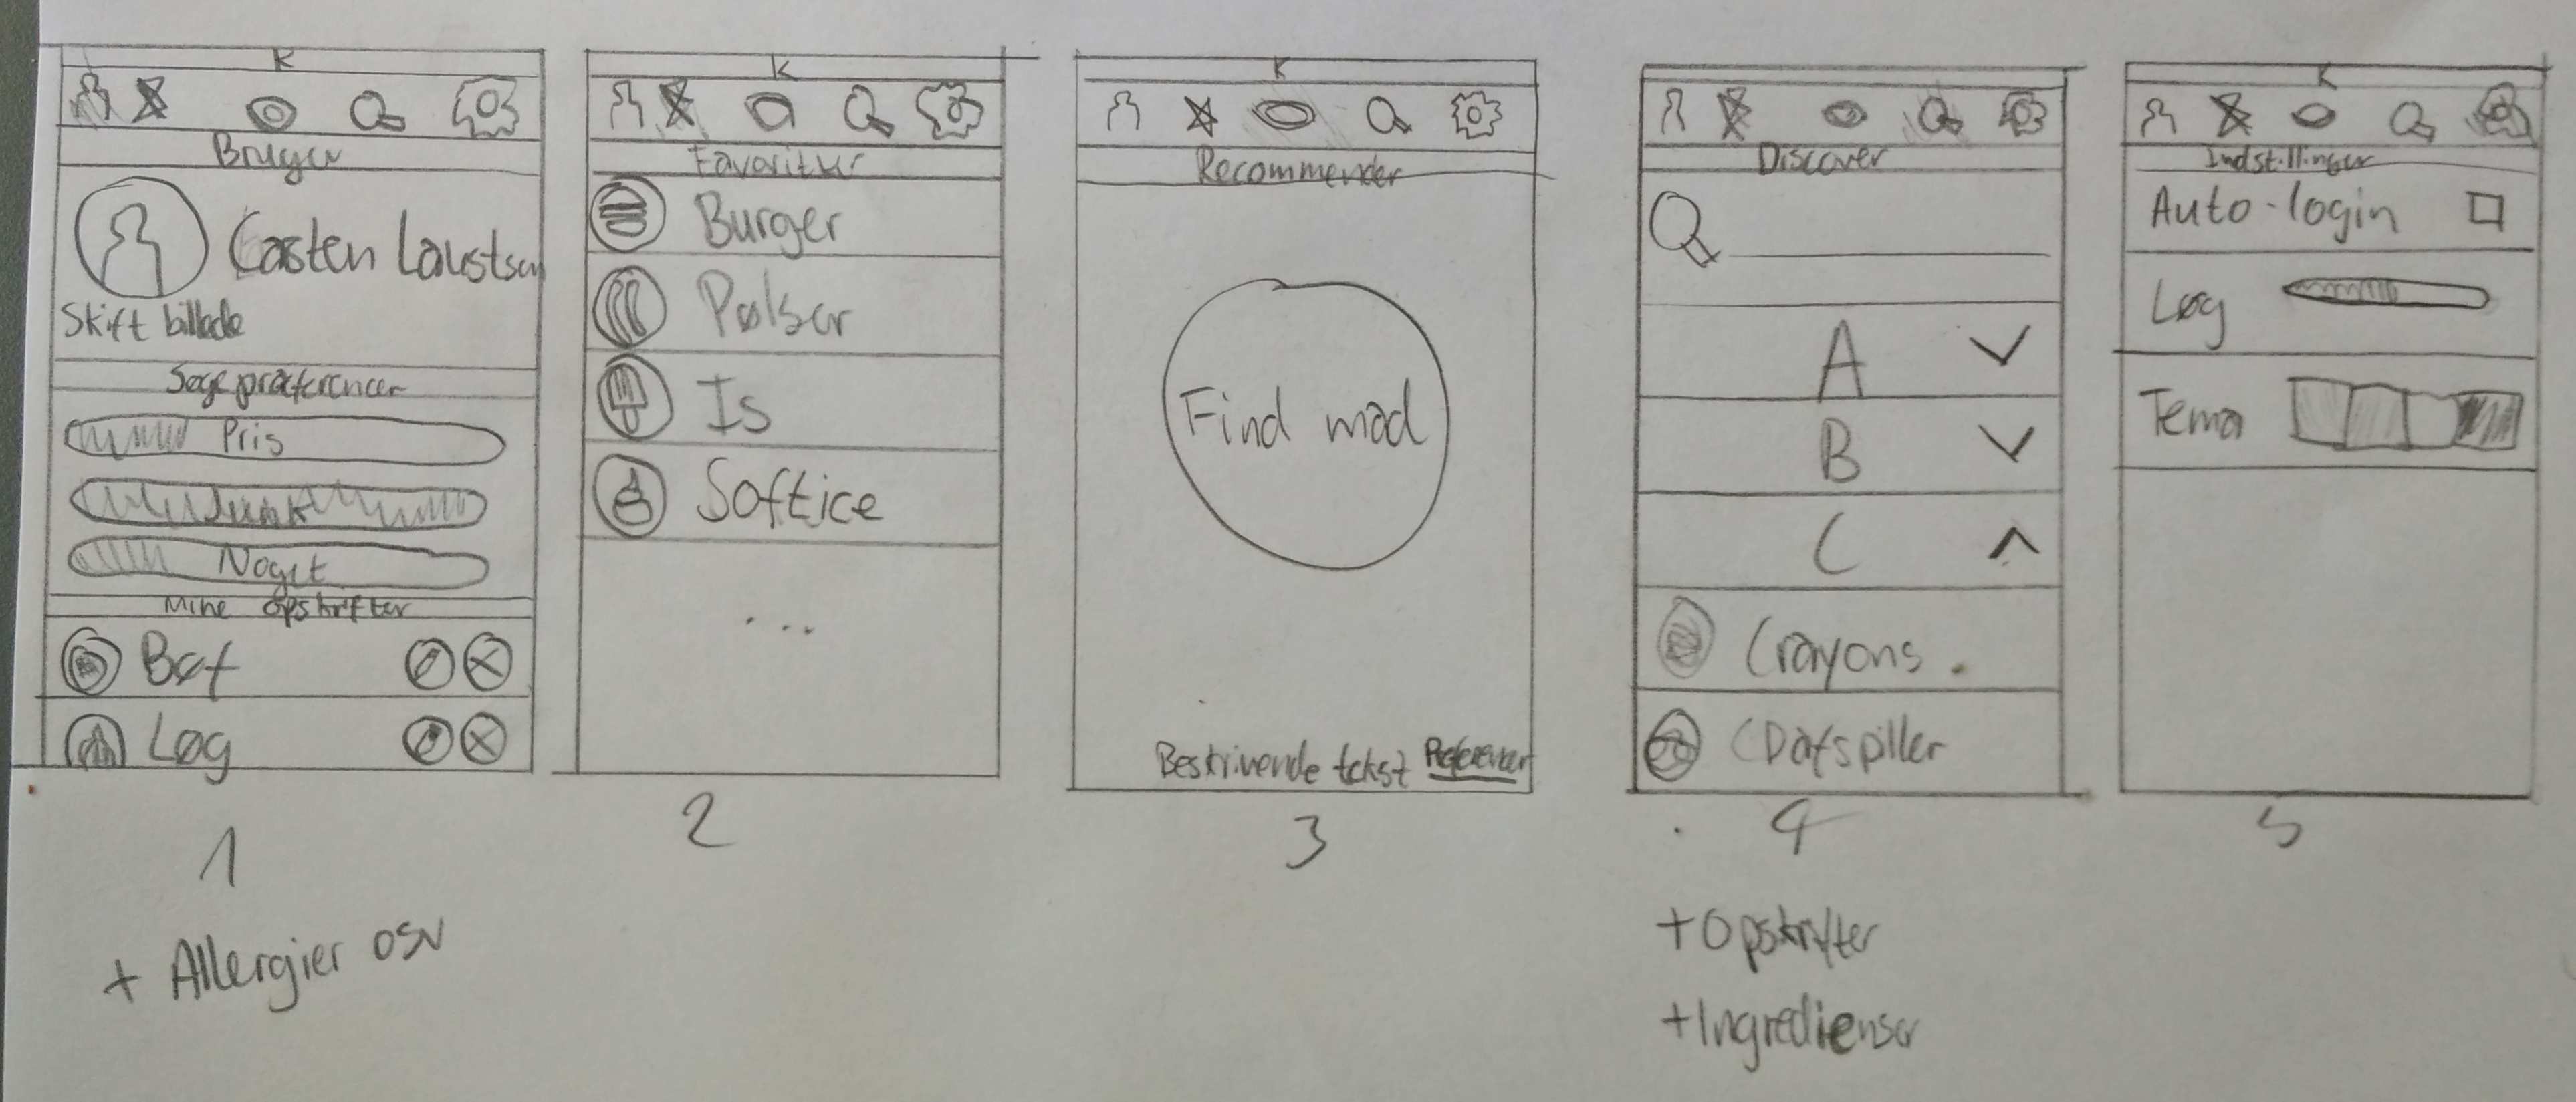 K
Bruger
Casten Laustsen
Skift billede
Søge præferencer
Pris
Junk
Noget
Mine opskrifter
Bøf
Løg
1
+ Allergier osv
K
Favoritter
Burger
Pølser
Is
Softice
...
2
K
Recommender
Find mad
Beskrivende tekst Præferencer
3
K
Discover
A
B
C
Crayons
CDafspiller
4
+Opskrifter
+Ingredienser
K
Indstillinger
Auto-login
Løg
Tema
5